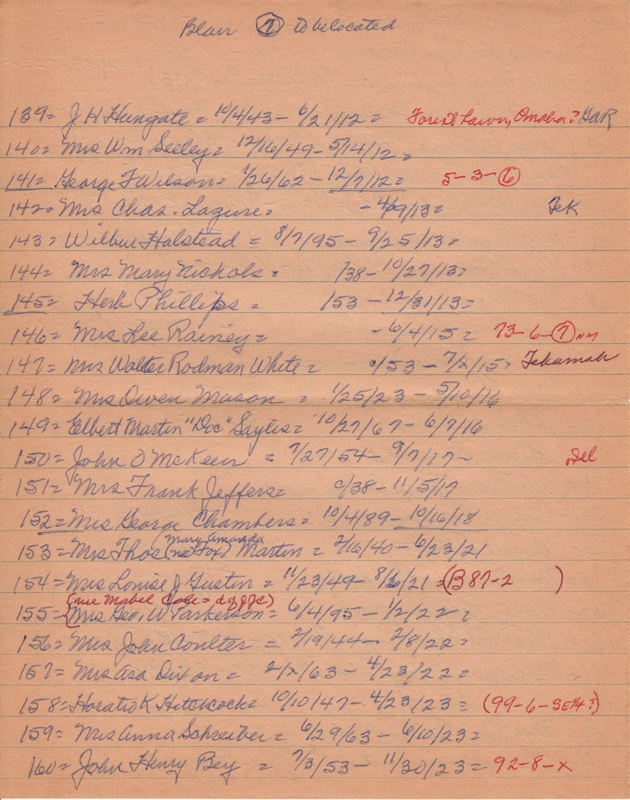 Blair (7) to be located
139= J H Hungate = 10/4/43 - 6/21/12 = Forest Lawn, Omaha? GAR
140= Mrs Wm Seeley = 12/16/49 - 5/14/12 =
141= George F Wilson = 1/26/62 - 12/7/12 = 5-3-(6)
142= Mrs Chas. Lazure = - 4/9/13 = Tek
143= Wilbur Halstead = 8/7/95 - 9/25/13 =
144= Mrs Mary Nichols = /38 - 10/27/13 =
145= Herb Phillips = /53 - 12/31/13 =
146= Mrs Lee Rainey = - 6/4/15 = 73-6-(7) NM
147= Mrs Walter Rodman White = c/53 - 7/2/15 = Tekamah
148= Mrs Owen Mason = 1/25/23 - 5/10/16
149= Elbert Martin "Doc" Sayles = 10/27/67 - 6/7/16
150= John O McKeen = 7/27/54 - 9/7/17 - Del
151= Mrs Frank Jeffers = c/38 - 11/5/17
152= Mrs George Chambers = 10/4/89 - 10/16/18
153= Mrs Thos (Mary Amanda nee Fox) Martin = 2/16/40 - 6/23/21
154= Mrs Louise J Gustin = 11/23/49 - 8/6/21 = (B87-2 )
(nee Mabel Cole = d of J C)
155= Mrs Geo. W Parkerson = 6/4/95 - 1/2/22 =
156= Mrs John Coulter = 2/19/44 - 2/8/22 =
157= Mrs Asa Dixon = 2/x/63 - 4/23/22 =
158= Horatio K Hitchcock = 10/10/47 - 4/23/23 = (99-6-SE1/4?)
159= Mrs Anna Schreiber = 6/29/63 - 6/10/23 =
160= John Henry Bey = 7/3/53 - 11/30/23 = 92-8-x